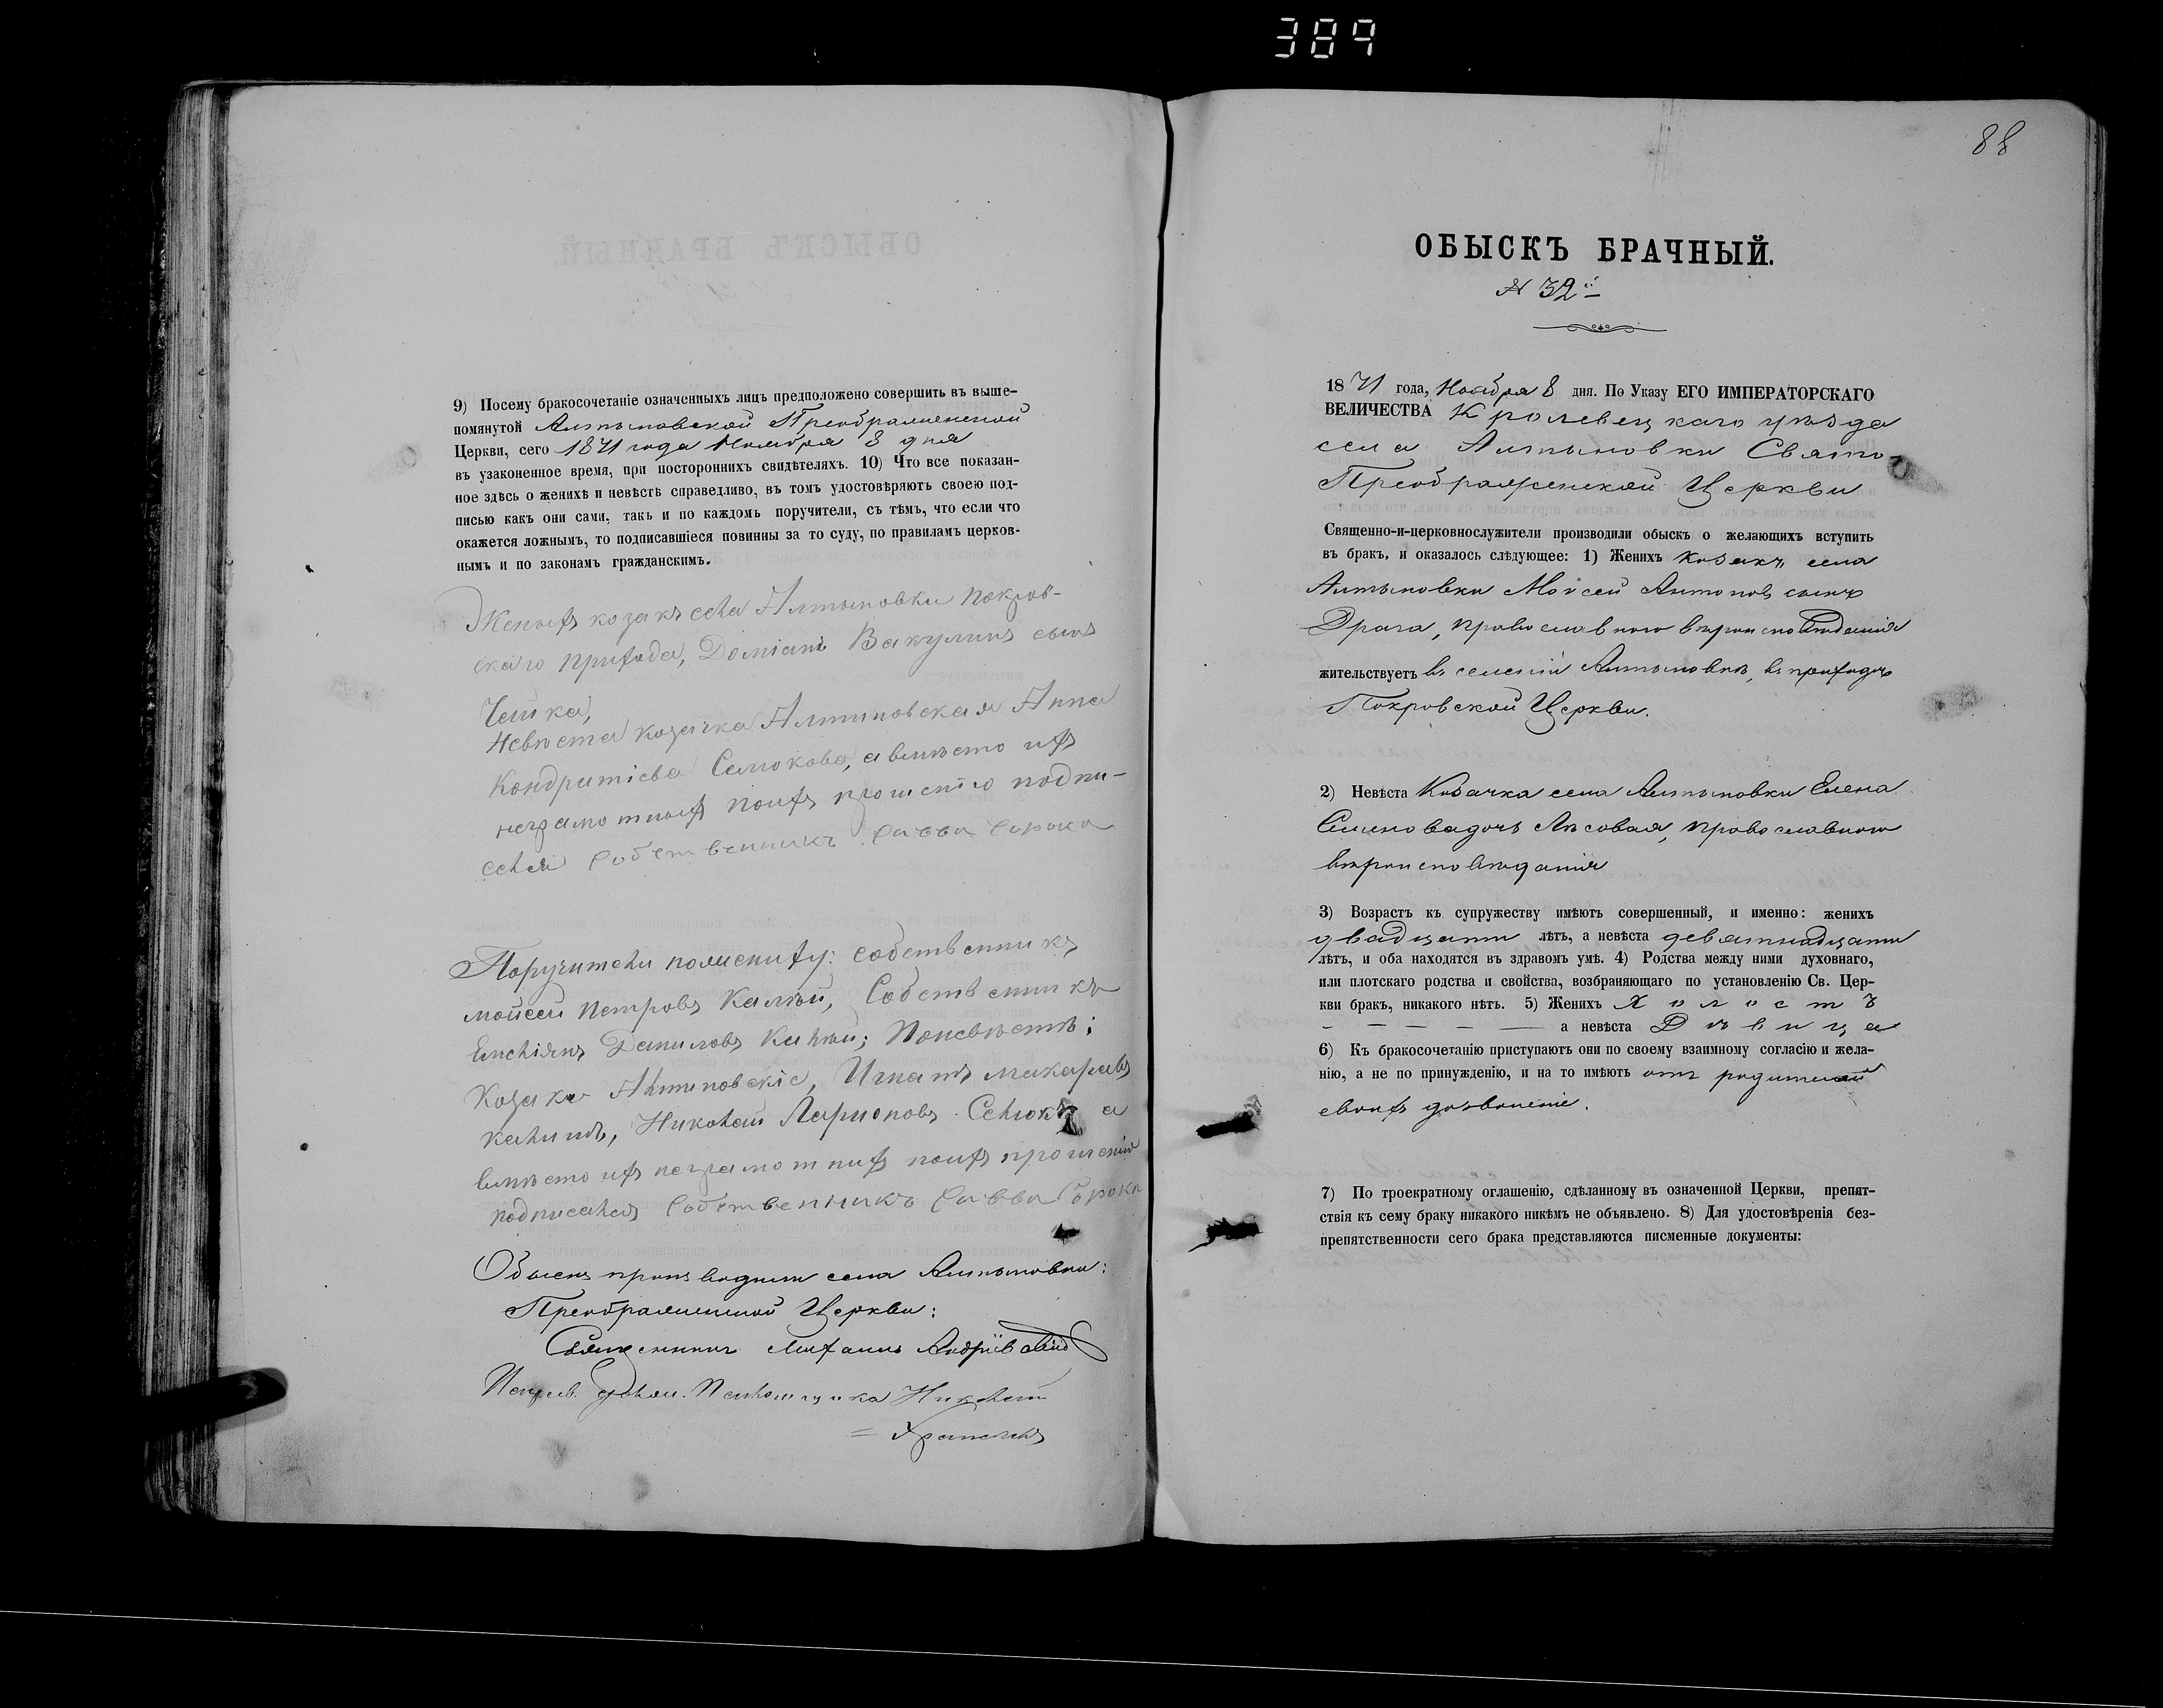 389
9) Посему бракосочетаніе означенныхъ лицъ предположено совершить въ выше-
помянутой Алтыновской Преображенской
Церкви, сего 1871 года Ноября 8 дня
въ узаконенное время, при постороннихъ свидѣтеляхъ. 10) Что все показан-
ное здѣсь о женихѣ и невѣстѣ справедливо, въ томъ удостовѣряютъ своею под-
писью какъ они сами, такъ и по каждомъ поручители, съ тѣмъ, что если что
окажется ложнымъ, то подписавшіеся повинны за то суду, по правиламъ церков-
нымъ и по законамъ гражданскимъ.
Женихъ козакъ села Алтыновки Покров-
скаго прихода, Доміанъ Вакулинъ сынъ
Чешка,
Невѣста козачка Алтиновская Анна
Кондратіева а вмѣсто ихъ
неграмотныхъ поихъ прошенію подпи-
сался Собственникъ Савва Сорока
Поручители поженихү: собственникъ
мойсей Петровъ Калюй, Собственникъ
Даниловъ Поневѣстѣ:
Козаки Алтиновскіе, Игнатъ макаровъ
Николай Ларионовъ а
вмѣсто ихъ неграмотнихъ поихъ прошенію
подписался Собственникъ Савва Сорока
Обыскъ производили села Алтыновки:
Преображенской Церкви:
Священникъ Михаилъ Андріевскій
Николай
88
ОБЫСКЪ БРАЧНЫЙ.
№ 32й
1871 года, Ноября 8 дня. По Указу ЕГО ИМПЕРАТОРСКАГО
ВЕЛИЧЕСТВА Кролевецкаго уѣзда
села Алтыновки Свято-
Преображенской Церкви
Священно-и-церковнослужители производили обыскъ о желающихъ вступить
въ бракъ, и оказалось слѣдующее: 1) Женихъ Козакъ села
Алтыновки Моѵсей Антоновъ сынъ
Драга, православного вѣроисповѣданія
жительствуетъ въ селеніи Алтыновкѣ, въ приходѣ
Покровской Церкви.
2) Невѣста Козачка села Алтыновки Елена
Семенова дочь Лѣсовая, православного
вѣроисповѣданія
3) Возрастъ къ супружеству имѣютъ совершенный, и именно: женихъ
двадцати лѣтъ, а невѣста девятнадцати
лѣтъ, и оба находятся въ здравомъ умѣ. 4) Родства между ними духовнаго,
или плотскаго родства и свойства, возбраняющаго по установленію Св. Цер-
кви бракъ, никакого нѣтъ. 5) Женихъ Холостъ
- - - - - — а невѣста Дѣвица
6) Къ бракосочетанію приступаютъ они по своему взаимному согласію и жела-
нію, а не по принужденію, и на то имѣютъ отъ родителей
своихъ дозволеніе.
7) По троекратному оглашенію, сдѣланному въ означенной Церкви, препят-
ствія къ сему браку никакого никѣмъ не объявлено. 8) Для удостовѣренія без-
препятственности сего брака представляются писменные документы: